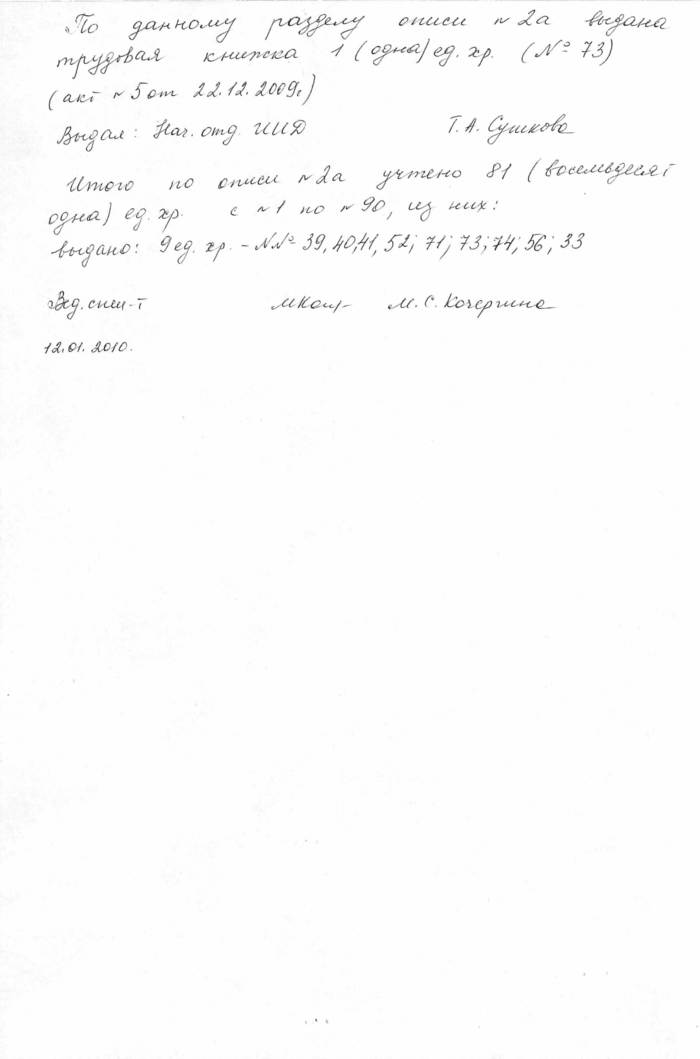 По данному разделу описи № 2а выдана
трудовая книжка 1 (одна) ед. хр. (№ 73)
(акт № 5 от 22.12.2009г)
Выдал: Нач. отд. ИИД Т.А. Сушкова
Итого по описи № 2а учтено 81 (восемьдесят
одна) ед. хр. с № 1 по № 90, из них:
выдано: 9 ед. хр. - №№ 39, 40, 41, 52; 71; 73; 74; 56; 33
Вед. спец-т М.С. Кочергина
12.01.2010.